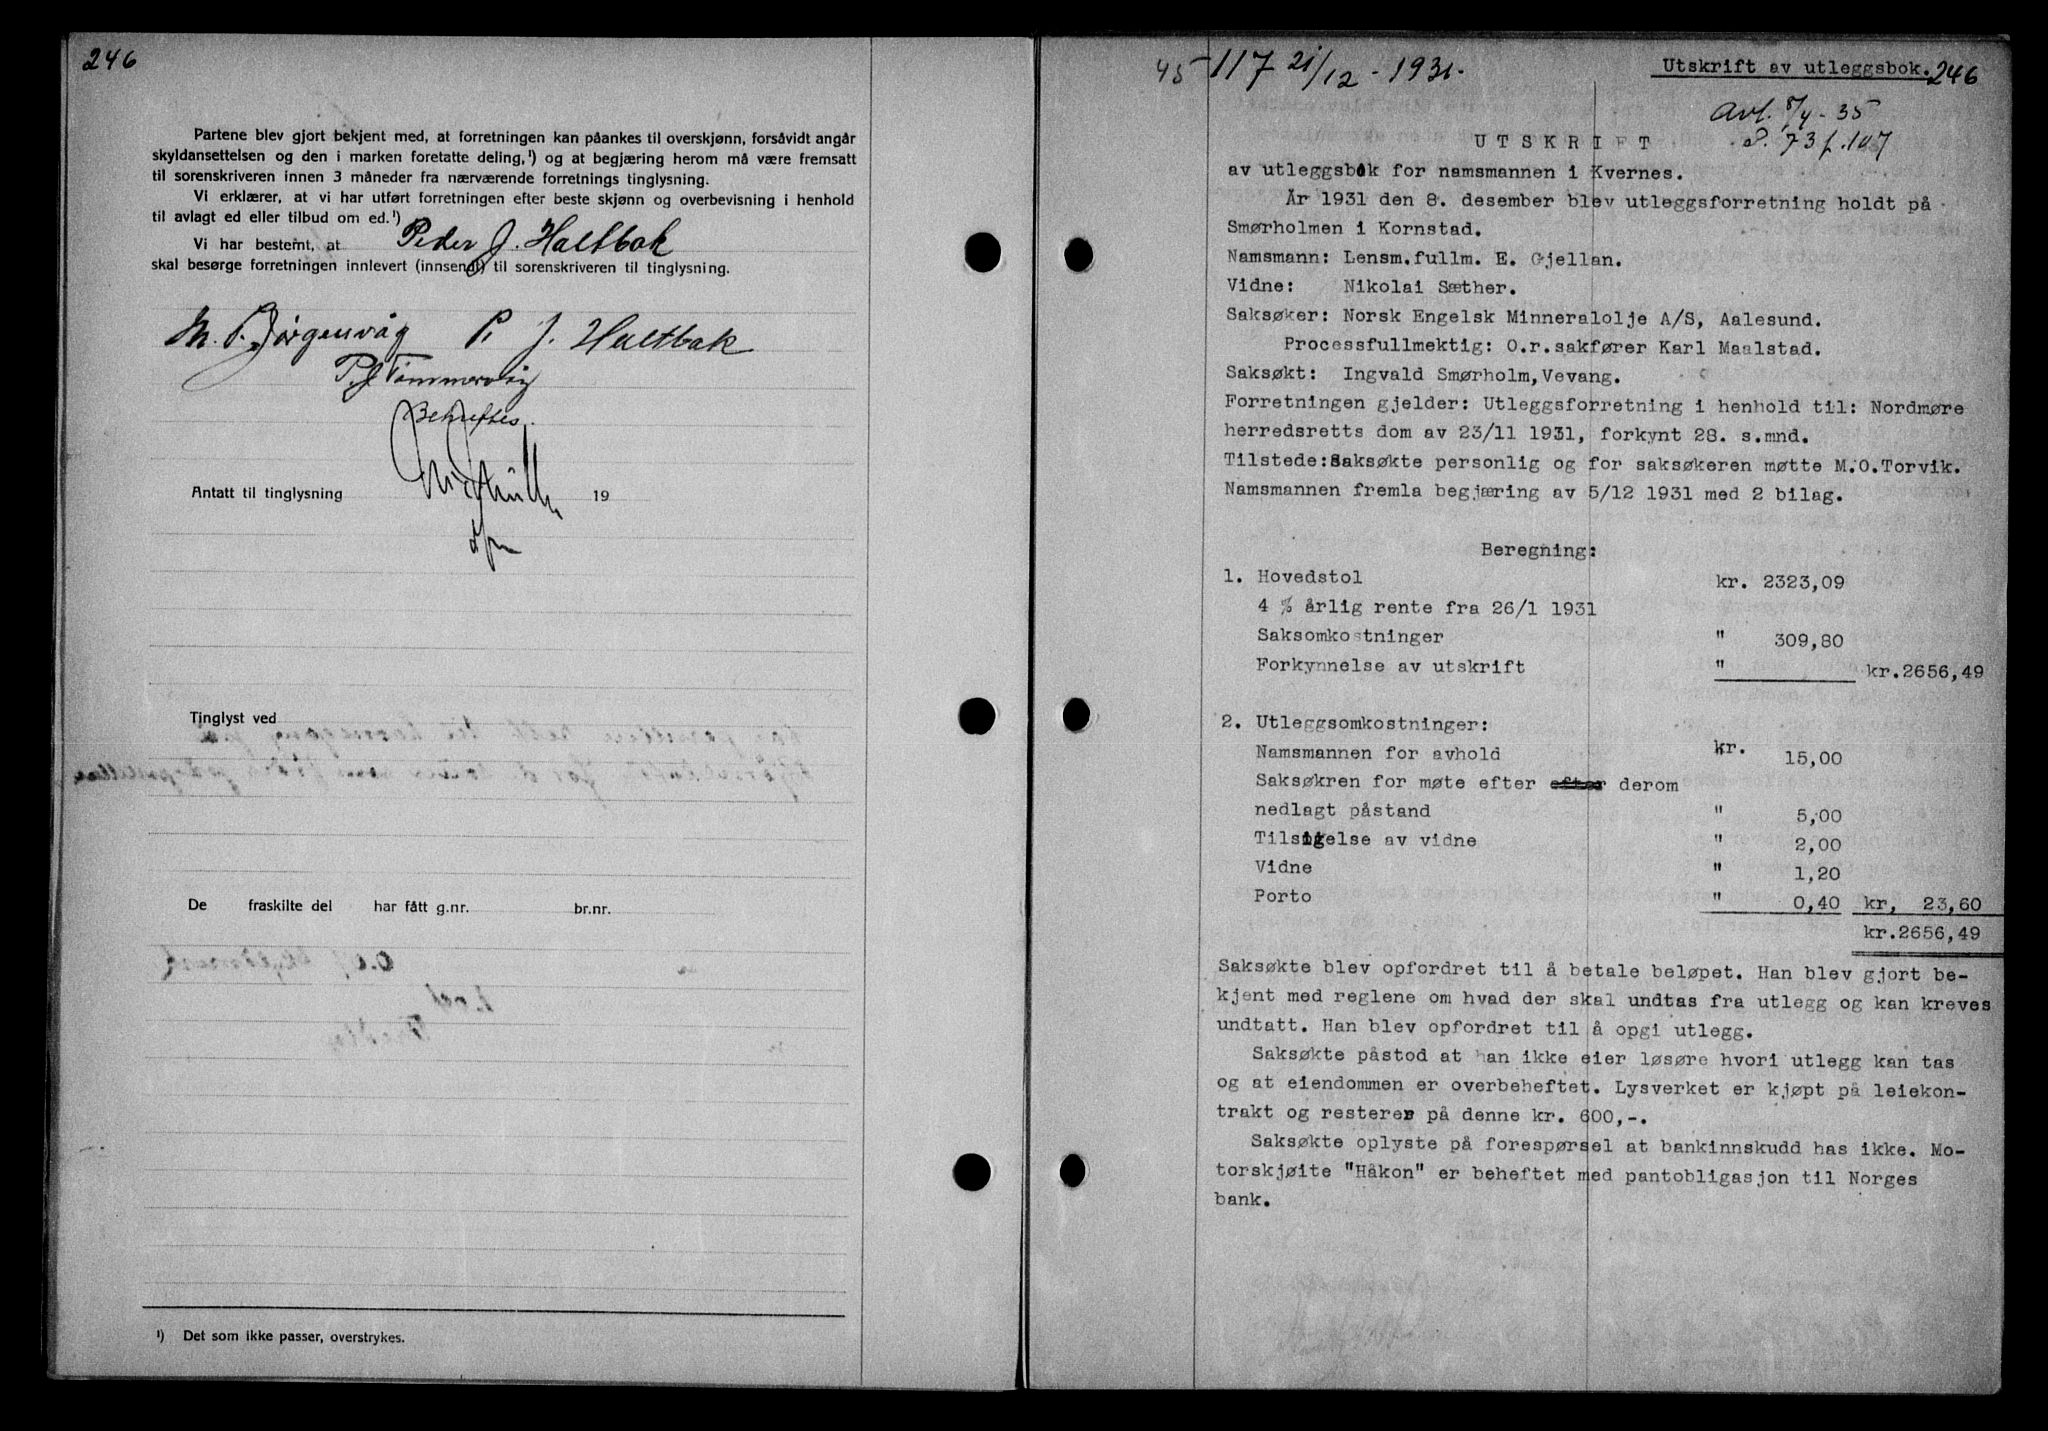 246
Partene blev gjort bekjent med, at forretningen kan påankes til overskjønn, forsåvidt angår
skyldansettelsen og den i marken foretatte deling,¹) og at begjæring herom må være fremsatt
til sorenskriveren innen 3 måneder fra nærværende forretnings tinglysning.
Vi erklærer, at vi har utført forretningen efter beste skjønn og overbevisning i henhold
til avlagt ed eller tilbud om ed.¹)
Vi har bestemt, at Peder J. Haltbak
skal besørge forretningen innlevert (innsendt) til sorenskriveren til tinglysning.
M. P. Jörgenvåg P. J. Haltbak
P. J. Tömmervåg
Bekreftes.
Antatt til tinglysning 19
Tinglyst ved
De fraskilte del har fått g.nr. br.nr.
¹) Det som ikke passer, overstrykes.
45 117 21/12 - 1931.
Utskrift av utleggsbok. 246
Avl. 8/4 - 35
P. 73 f. 107
UTSKRIFT
av utleggsbok for namsmannen i Kvernes.
År 1931 den 8. desember blev utleggsforretning holdt på
Smørholmen i Kornstad.
Namsmann: Lensm.fullm. E. Gjellan.
Vidne: Nikolai Sæther.
Saksøker: Norsk Engelsk Minneralolje A/S, Aalesund.
Processfullmektig: O.r.sakfører Karl Maalstad.
Saksøkt: Ingvald Smørholm, Vevang.
Forretningen gjelder: Utleggsforretning i henhold til: Nordmøre
herredsretts dom av 23/11 1931, forkynt 28. s.mnd.
Tilstede: Saksøkte personlig og for saksøkeren møtte M.O.Torvik.
Namsmannen fremla begjæring av 5/12 1931 med 2 bilag.
Beregning:
1. Hovedstol kr. 2323,09
4 % årlig rente fra 26/1 1931
Saksomkostninger " 309,80
Forkynnelse av utskrift " kr.2656,49
2. Utleggsomkostninger:
Namsmannen for avhold kr. 15,00
Saksøkren for møte efter efter derom
nedlagt påstand " 5,00
Tilsigelse av vidne " 2,00
Vidne " 1,20
Porto " 0,40 kr, 23,60
kr.2656,49
Saksøkte blev opfordret til å betale beløpet. Han blev gjort be-
kjent med reglene om hvad der skal undtas fra utlegg og kan kreves
undtatt. Han blev opfordret til å opgi utlegg.
Saksøkte påstod at han ikke eier løsøre hvori utlegg kan tas
og at eiendommen er overbeheftet. Lysverket er kjøpt på leiekon-
trakt og resterer på denne kr. 600,-.
Saksøkte oplyste på forespørsel at bankinnskudd has ikke. Mo-
torskjøite "Håkon" er beheftet med pantobligasjon til Norges
bank.